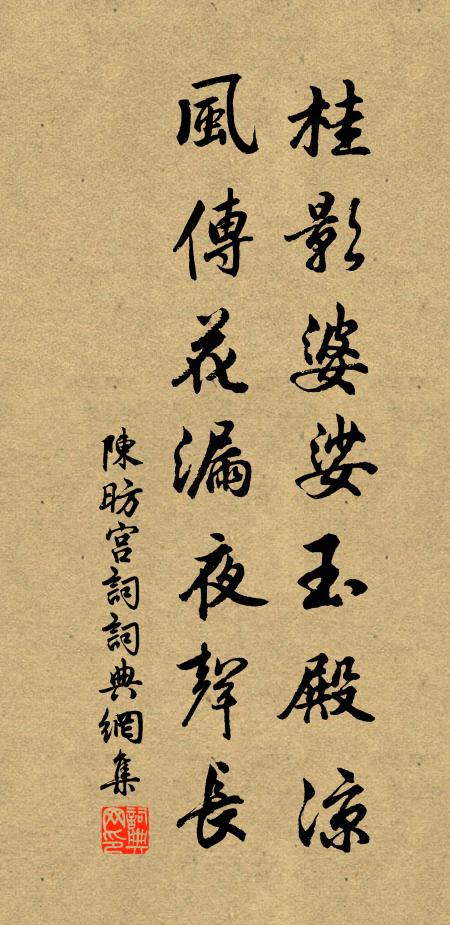 桂影婆娑玉殿涼
風傳花漏夜聲長
陳昉宮詞詞典網集
詞典網印